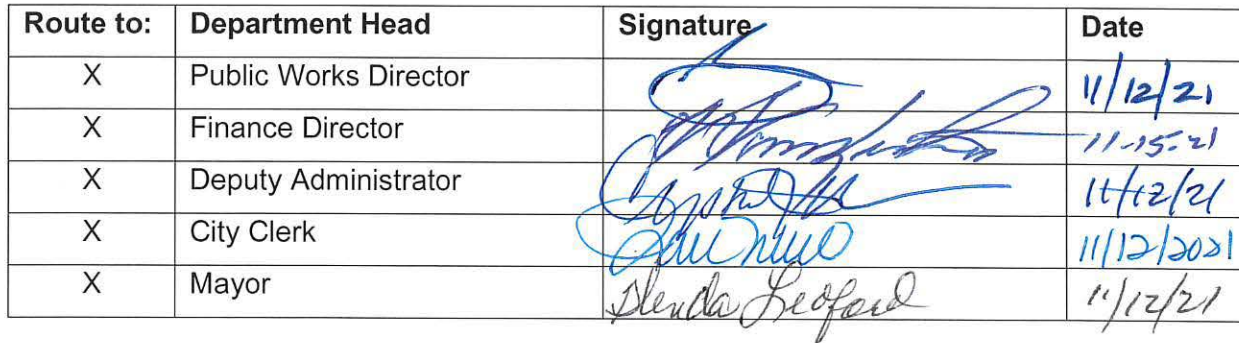 Route to: Department Head Signature Date
X Public Works Director 11/12/21
X Finance Director 11-15-21
X Deputy Administrator 11/12/21
X City Clerk 11/12/2021
X Mayor Glenda Ledford 11/12/21